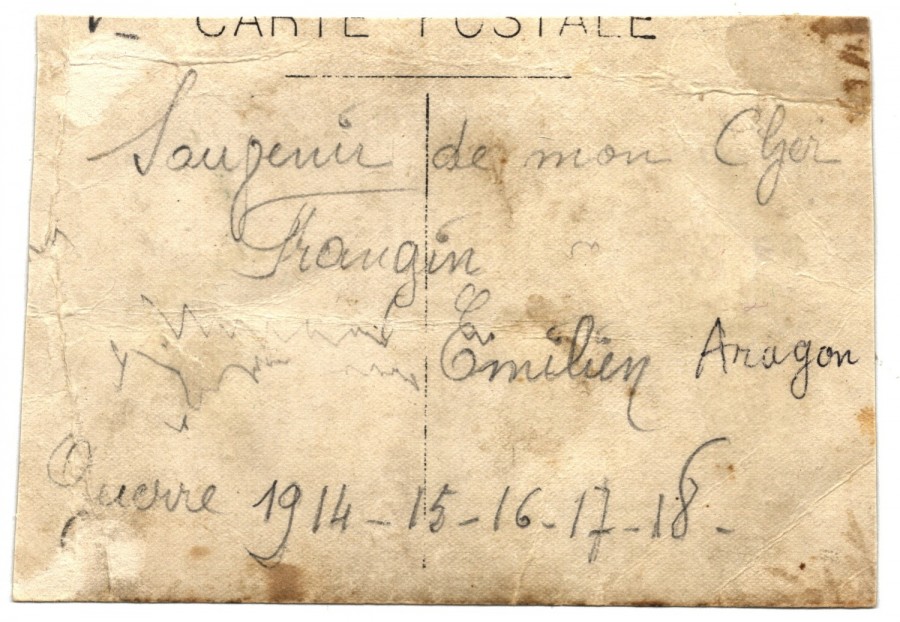 CARTE POSTALE
Souvenir de mon Cher
Frangin
Emilien Aragon
Guerre 1914-15-16-17-18-